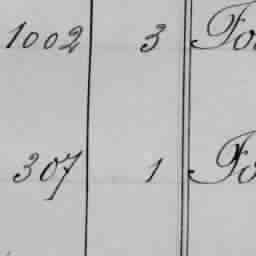 1002 3 Fo
307 1 Fo